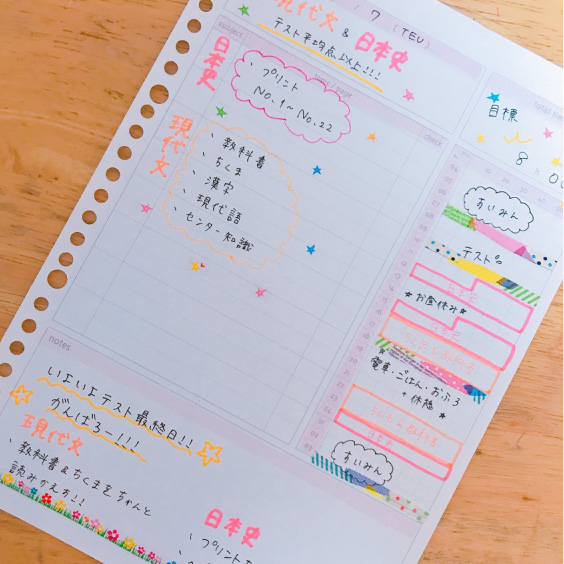 / 7 (TEU)
現代文 & 日本史
テスト平均点以上!!!
subject
check
日本史
・プリント
No.1〜No.22
現代文
・教科書
・ちくま
・漢字
・現代語
・センター知識
目標
8
すいみん
テスト
★お昼休み★
★電車・ごはん・おふろ
+休憩★
すいみん
notes
いよいよテスト最終日!!
がんばろー!!!
現代文
・教科書&ちくまをちゃんと
読みかえす!!
日本史
・プリント